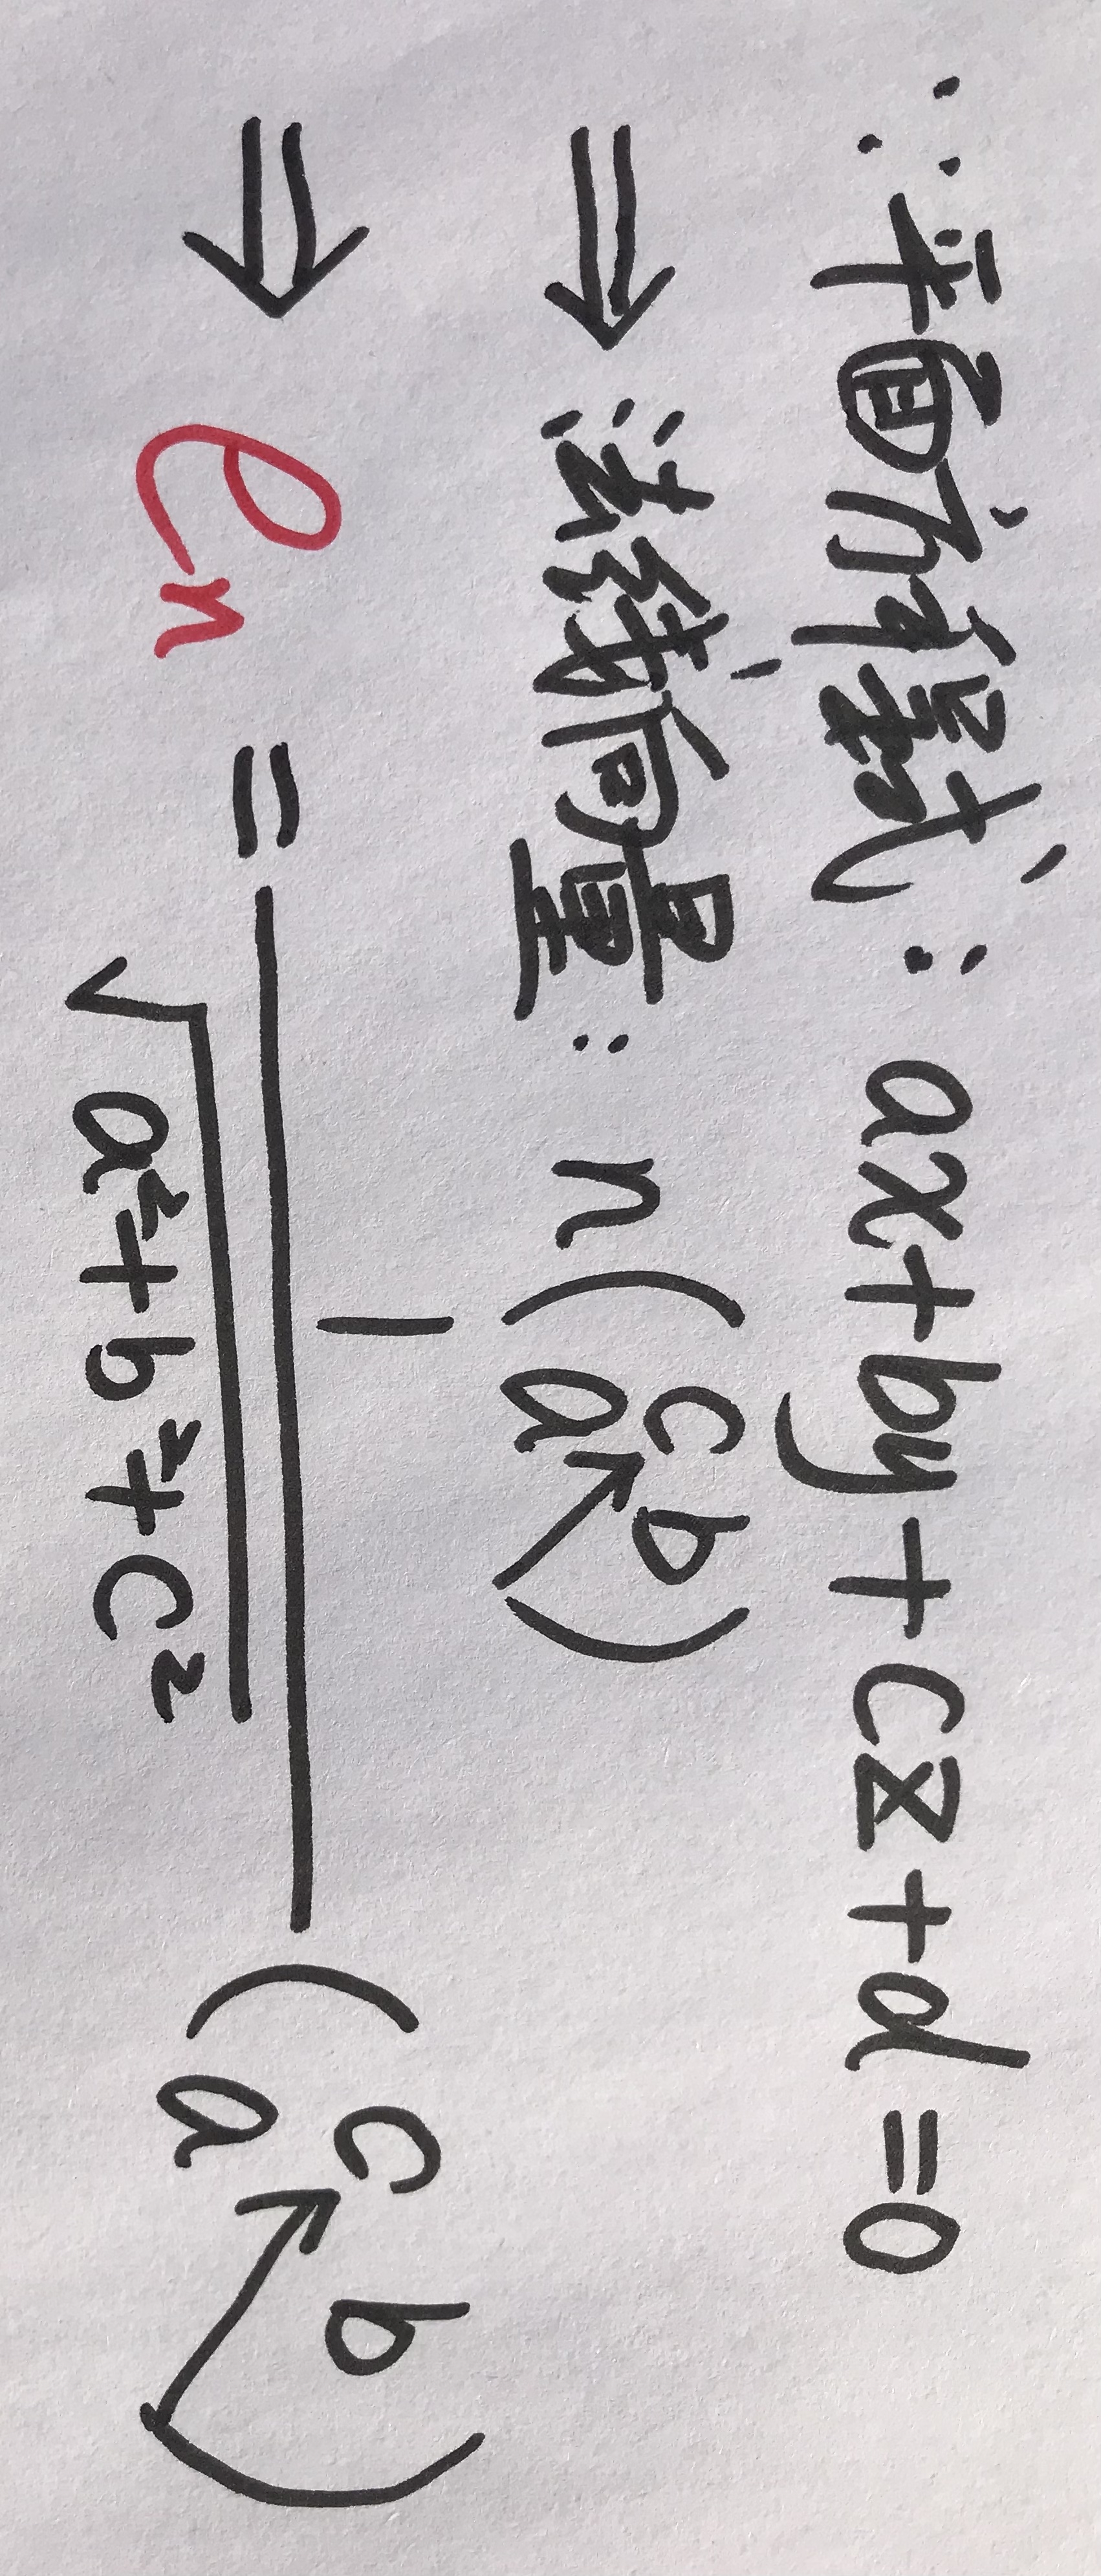 ∵平面方程式：ax+by+cz+d=0
⇒法线向量：n(c b a↖)
⇒ eₙ = 1/√(a²+b²+c²) (c b a↖)